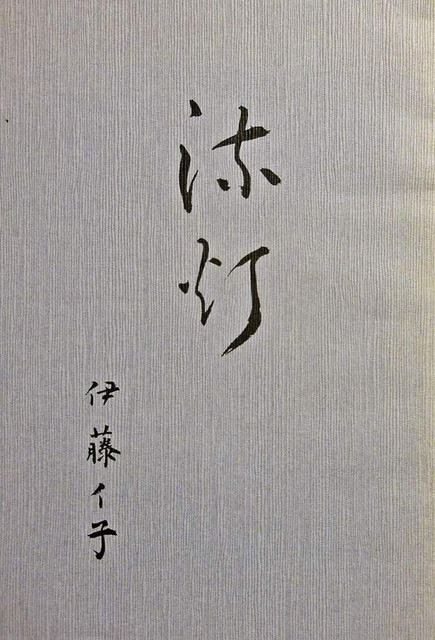 流灯
伊藤イ子